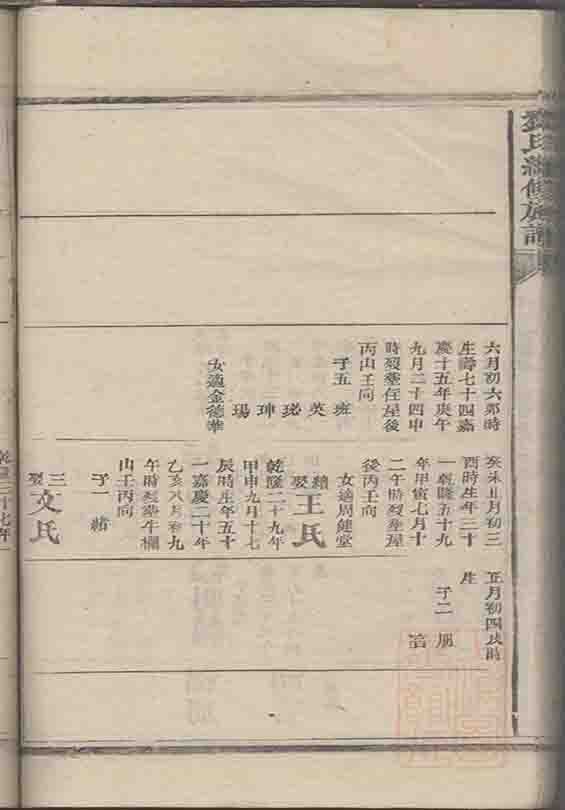 氏續修族譜
六月初六卯時
生壽七十四嘉
慶十五年庚午
九月二十四申
時歿塟住屋後
丙山壬向
子五 班
英
珌
珅
瑒
女適金德華
癸未正月初三
酉時生年三十
一乾隆五十九
年甲寅七月十
二午時歿塟屋
後丙壬向
女適周健堂
續娶王氏
乾隆二十九年
甲申九月十七
辰時生年五十
一嘉慶二十年
乙亥八月初九
午時歿塟牛欄
山壬丙向
子一 緒
三娶文氏
正月初四辰時
生
子二